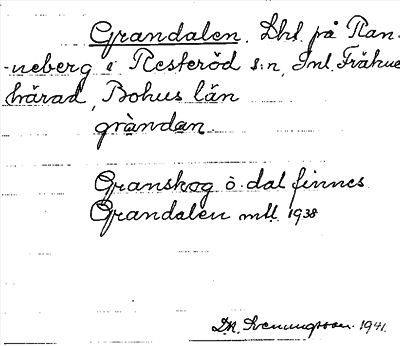 Grandalen. Lht. på Ran-
-neberg i Resteröd s:n, Inl. Fräkne
härad, Bohus län
gràndan.
Granskog o. dal finnes.
Grandalen mtl 1938
D.A. Svenungsson. 1941.